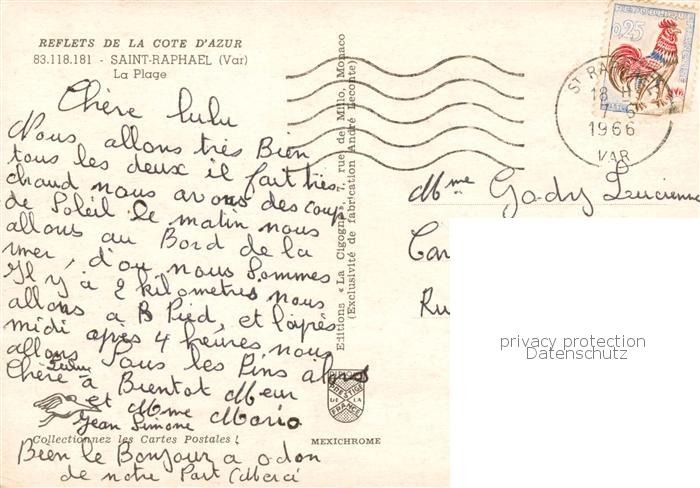 REFLETS DE LA COTE D'AZUR
83.118.181 - SAINT-RAPHAEL (Var)
La Plage
Chère lulu
Nous allons très Bien
tous les deux il fait très
chaud nous avons des coup
de Soleil le matin nous
allons au Bord de la
mer, d'ou nous Sommes
Il y à 2 kilometres nous
allons à Pied, et l'après
midi après 4 heures nous
allons Sous les Pins alors
Chère à Bientot Meur
et Mme Mario
Jean Simone
Collectionnez les Cartes Postales !
Bien le Bonjour a odon
de notre Part Merci
Editions « La Cigogne », 7, rue de Millo, Monaco
(Exclusivité de fabrication André Leconte)
PRESTIGE
DE LA
FRANCE
MEXICHROME
0,25
ST RAPHAEL
18 H
1966
VAR
Mme Gady Lucienne
Car
Ru
privacy protection
Datenschutz